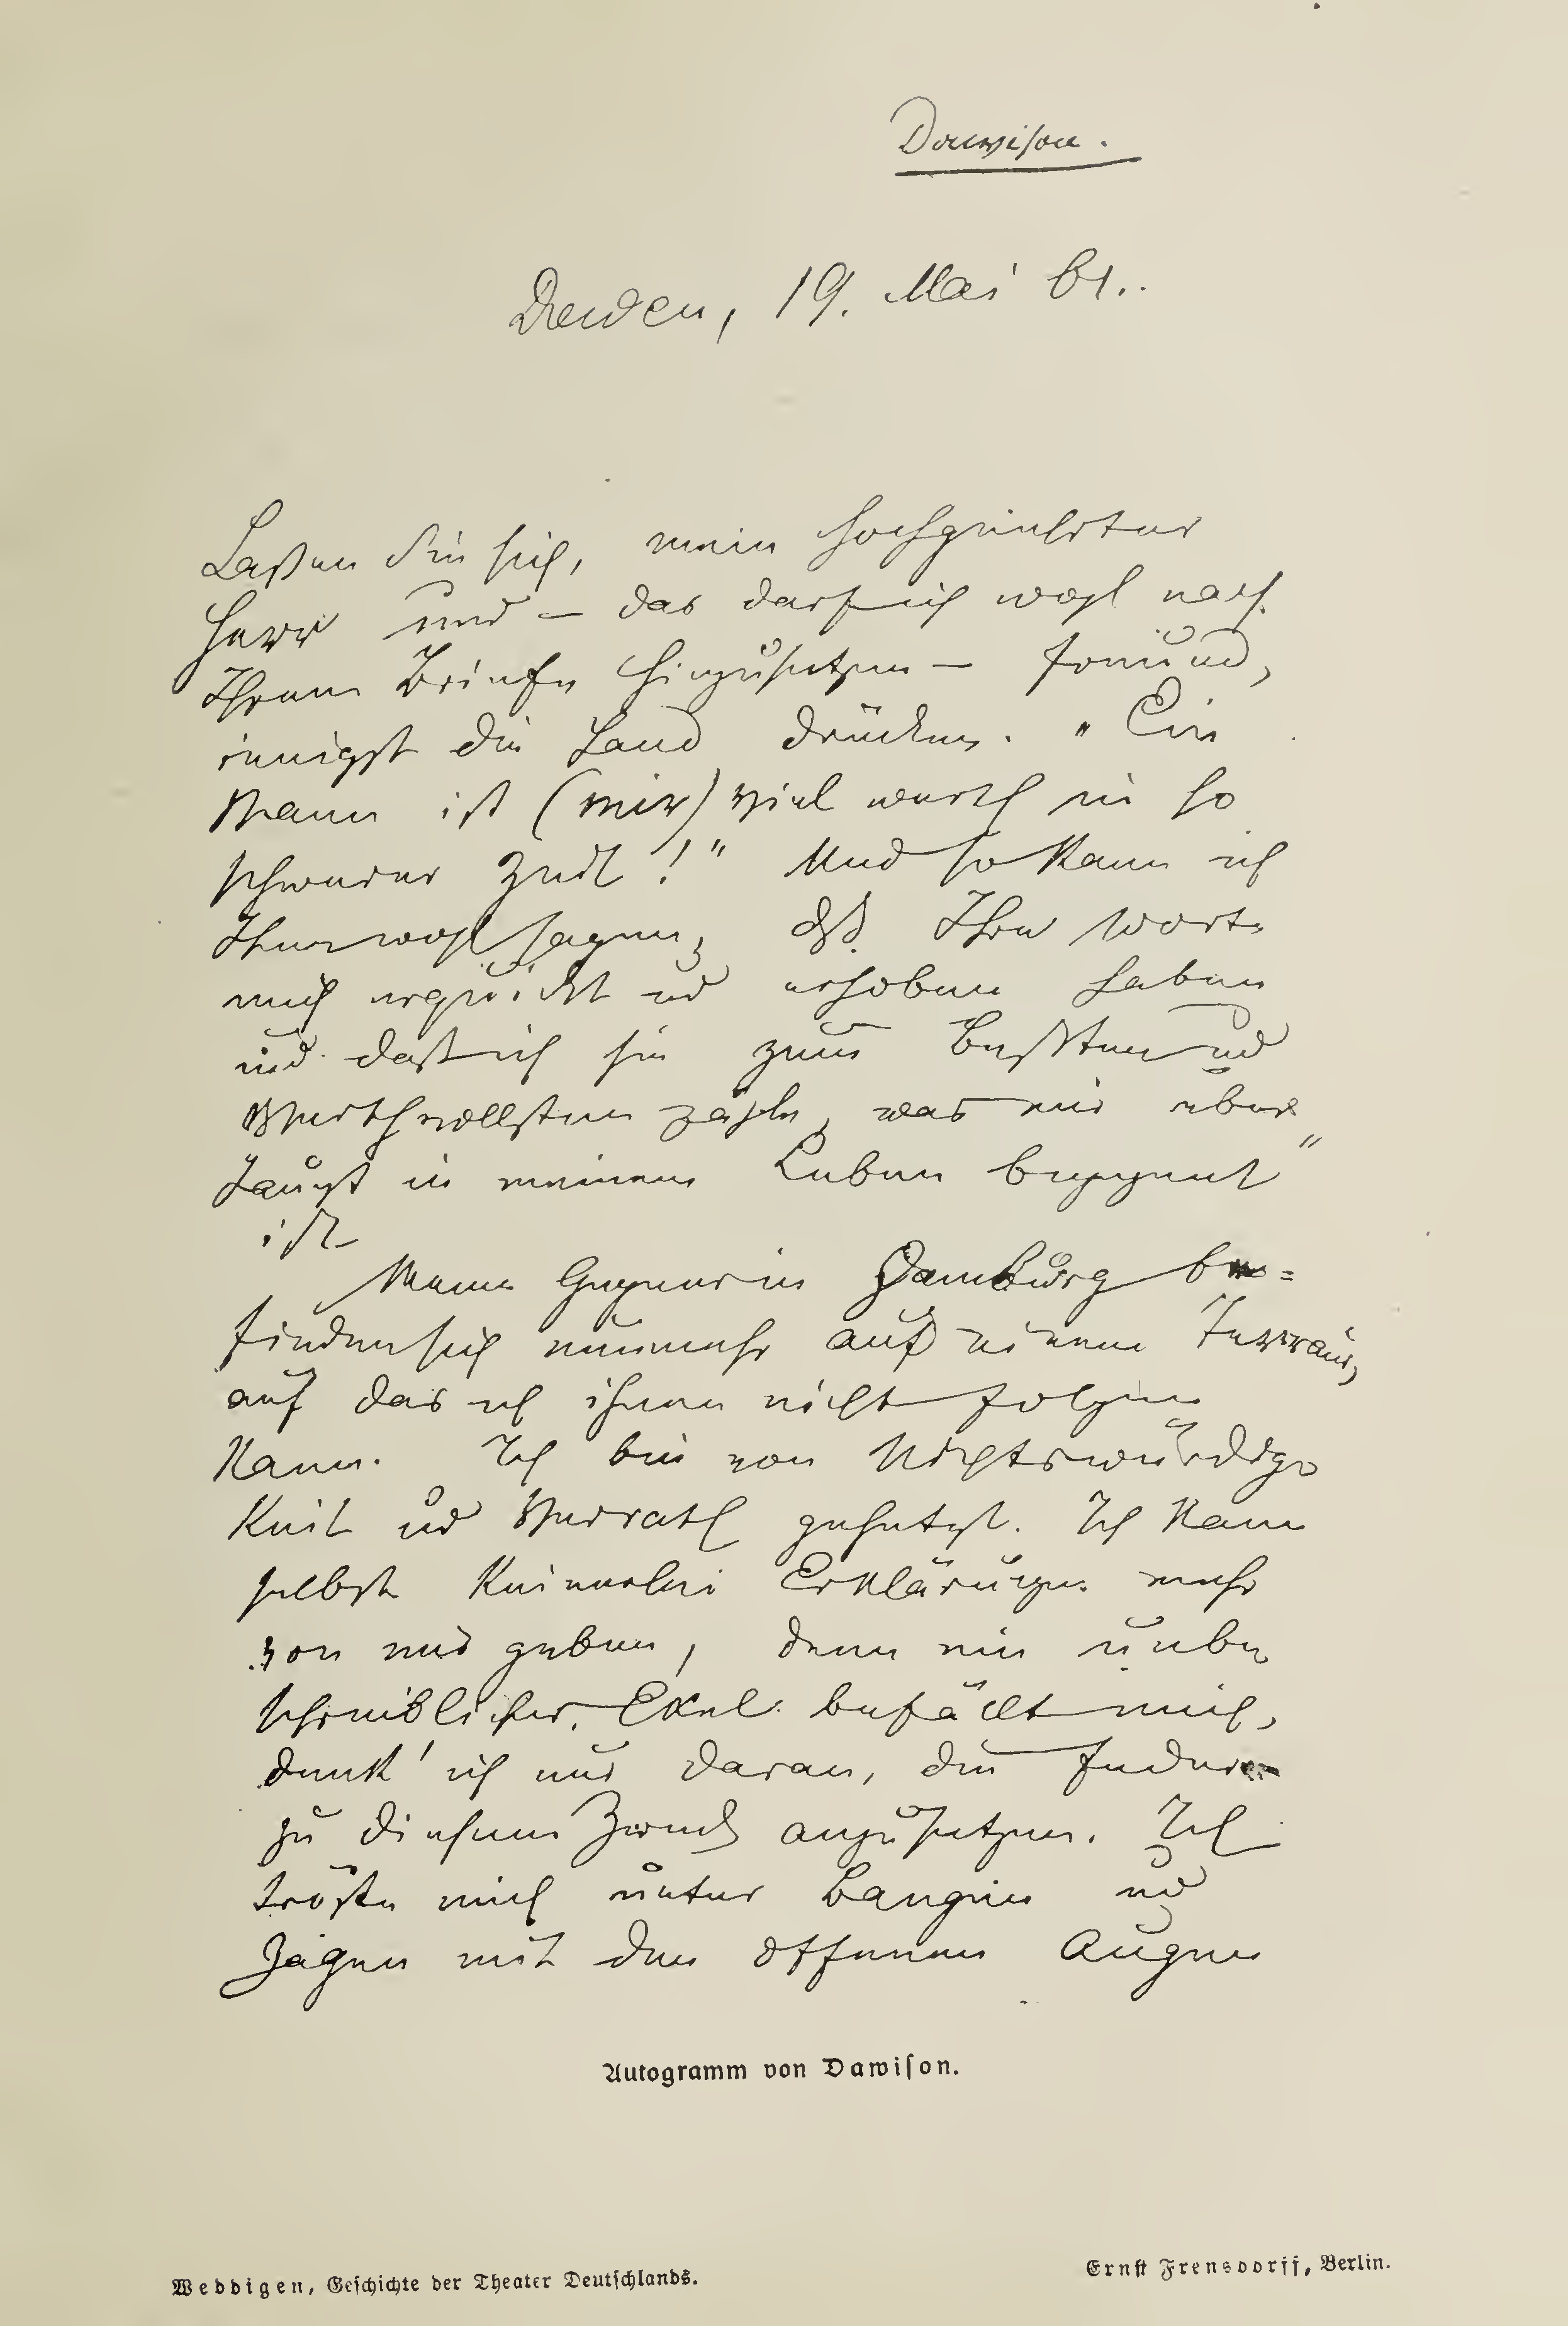 Dawison.
Dresden, 19. Mai 61.
Laßen Sie sich, mein hochgeehrter
Herr und – das darf ich wohl nach
Ihrem Briefe hinzusetzen – Freund,
innigst die Hand drücken. "Ein
Mann ist (mir) viel werth in so
schwerer Zeit!" Und so kann ich
Ihnen wohl sagen, dß Ihre Worte
mich erquickt und erhoben haben
und daß ich sie zum Besten und
Werthvollsten zähle, was mir über
haupt in meinem Leben begegnet
ist.
Meine Gegner in Hamburg be=
finden sich nunmehr auf einem Terrain,
auf das ich ihnen nicht folgen
kann. Ich bin von Nichtswürdig=
keit und Verrath gehetzt. Ich kann
selbst keinerlei Erklärungen mehr
von mir geben, denn ein unbe
schreiblicher Ekel befällt mich,
denk' ich nur daran, die Feder
zu diesem Zweck anzusetzen. Ich
tröste mich unter Bangen und
Zagen mit dem offenen Auge
Autogramm von Dawison.
Weddigen, Geschichte der Theater Deutschlands.
Ernst Frensdorff, Berlin.